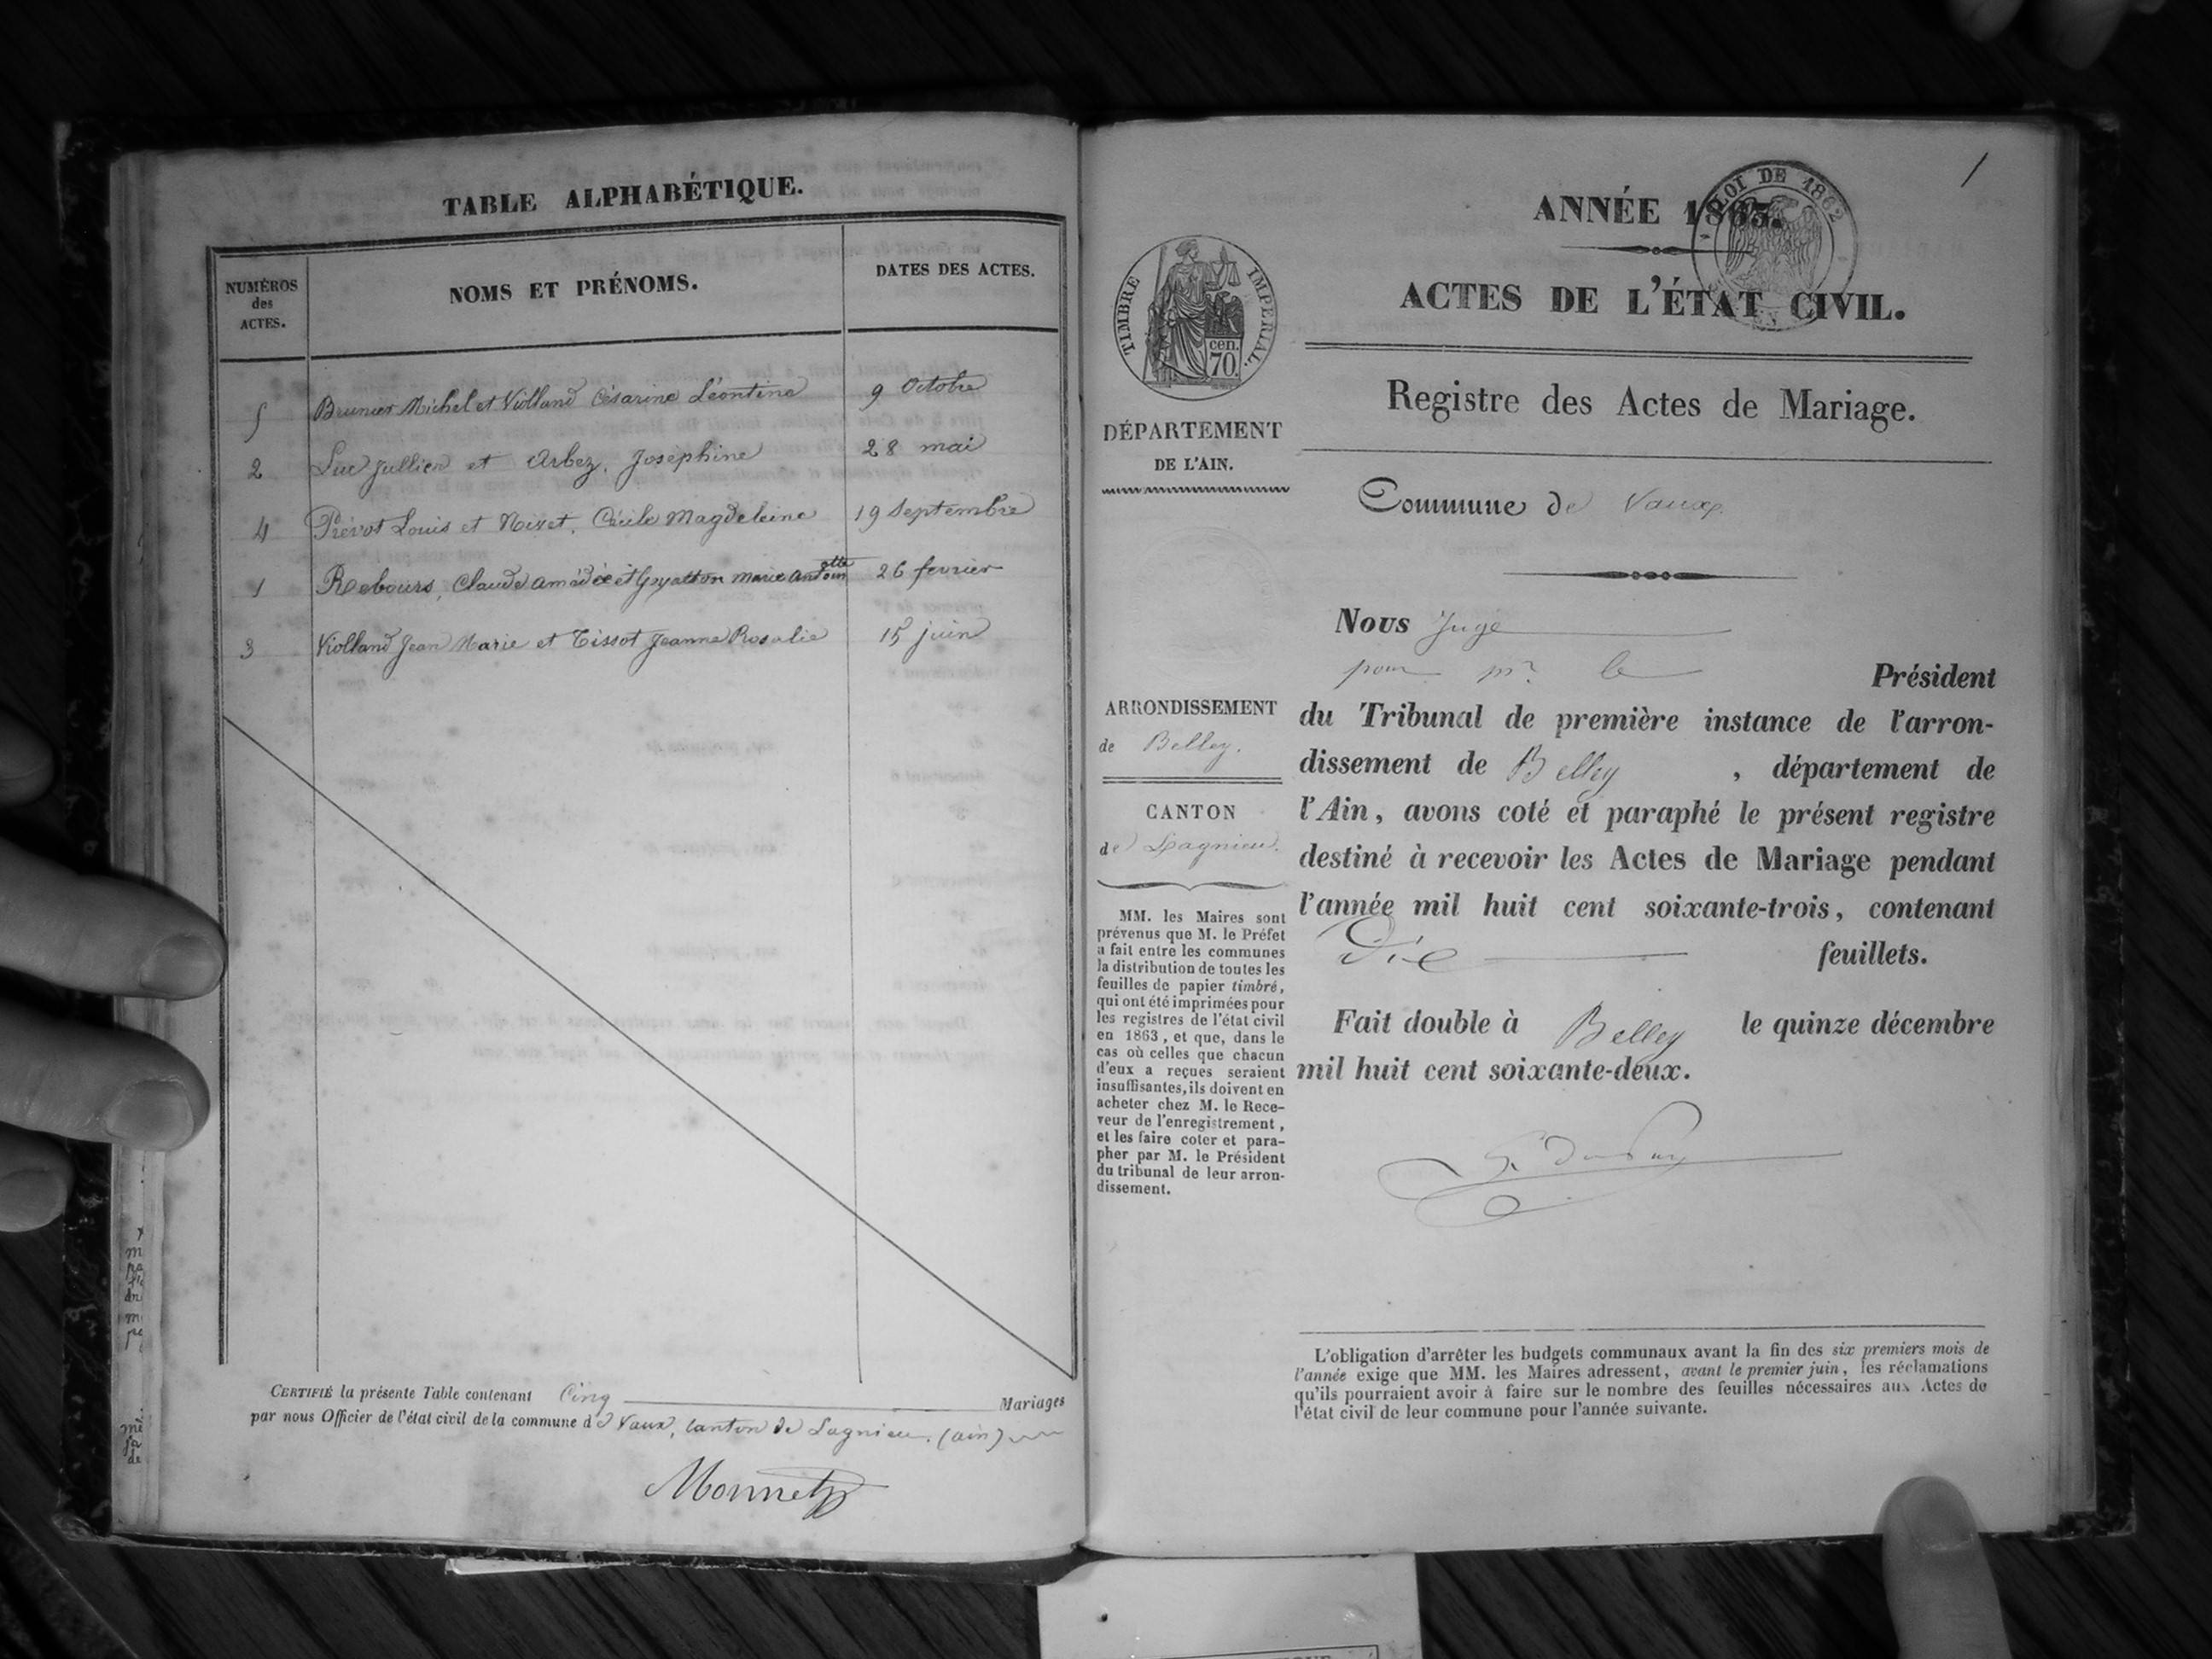 TABLE ALPHABÉTIQUE.
NUMÉROS des ACTES.
NOMS ET PRÉNOMS.
DATES DES ACTES.
5 Brunier Michel et Viollard Césarine Léontine 9 Octobre
2 Luc Jullien et Arbez, Joséphine 28 mai
4 Prévot Louis et Nizet, Cécile Magdeleine 19 Septembre
1 Rebours, Claude Amédée et Guyatton Marie Antoinette 26 fevrier
3 Viollard Jean Marie et Tissot Jeanne Rosalie 15 juin
CERTIFIÉ la présente Table contenant Cinq Mariages
par nous Officier de l'état civil de la commune de Vaux, canton de Lagnieu. (ain)
Monnet
1
ANNÉE 1863.
LOI DE 1862
ACTES DE L'ÉTAT CIVIL.
TIMBRE IMPÉRIAL.
70 cen.
Registre des Actes de Mariage.
DÉPARTEMENT
DE L'AIN.
Commune de Vaux
Nous Juge
pour mr le Président
du Tribunal de première instance de l'arron-
dissement de Belley, département de
l'Ain, avons coté et paraphé le présent registre
destiné à recevoir les Actes de Mariage pendant
l'année mil huit cent soixante-trois, contenant
Dix feuillets.
Fait double à Belley le quinze décembre
mil huit cent soixante-deux.
ARRONDISSEMENT
de Belley.
CANTON
de Lagnieu.
MM. les Maires sont
prévenus que M. le Préfet
a fait entre les communes
la distribution de toutes les
feuilles de papier timbré,
qui ont été imprimées pour
les registres de l'état civil
en 1863, et que, dans le
cas où celles que chacun
d'eux a reçues seraient
insuffisantes, ils doivent en
acheter chez M. le Rece-
veur de l'enregistrement,
et les faire coter et para-
pher par M. le Président
du tribunal de leur arron-
dissement.
L'obligation d'arrêter les budgets communaux avant la fin des six premiers mois de
l'année exige que MM. les Maires adressent, avant le premier juin, les réclamations
qu'ils pourraient avoir à faire sur le nombre des feuilles nécessaires aux Actes de
l'état civil de leur commune pour l'année suivante.